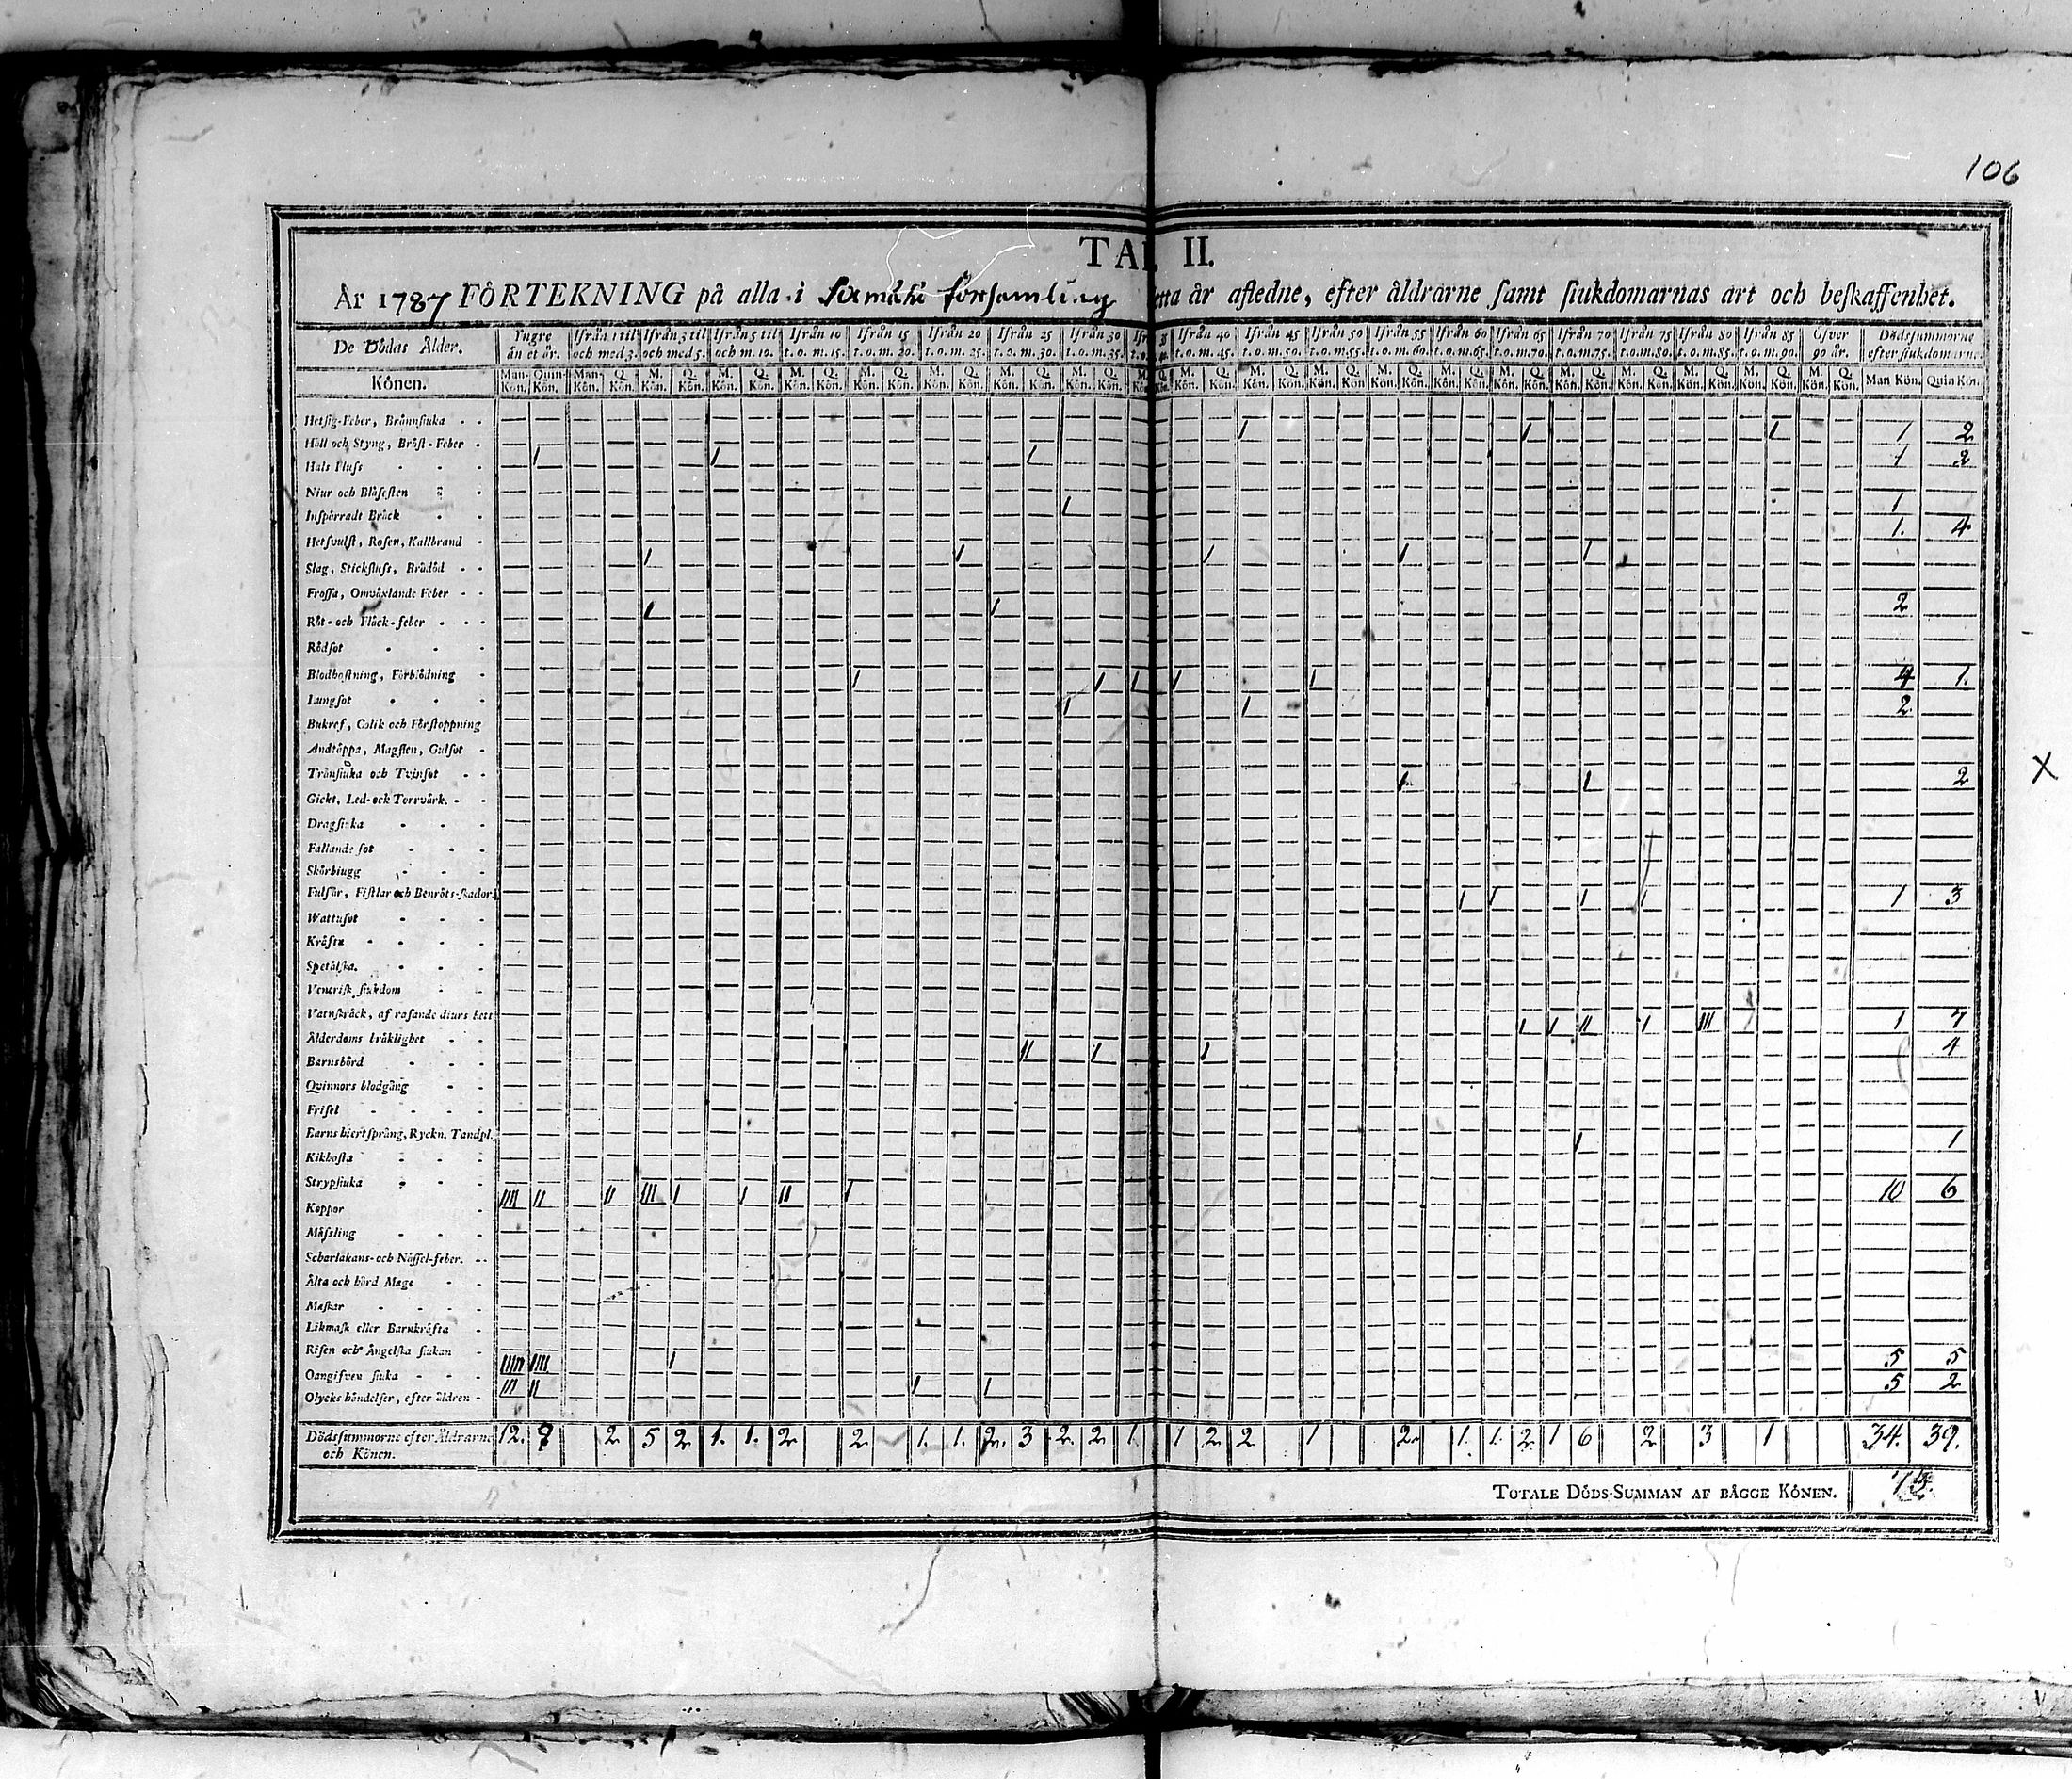 106
TAB. II.
År 1787 FÖRTEKNING på alla i församling detta år afledne, efter åldrarne samt siukdomarnas art och beskaffenhet.
De Dödas Ålder. Yngre än et år. Ifrån 1 till och med 3. Ifrån 3 til och med 5. Ifrån 5 til och m. 10. Ifrån 10 t. o. m. 15. Ifrån 15 t. o. m. 20. Ifrån 20 t. o. m. 25. Ifrån 25 t. o. m. 30. Ifrån 30 t. o. m. 35. Ifrån 40 t. o. m. 45. Ifrån 45 t. o. m. 50. Ifrån 50 t. o. m. 55. Ifrån 55 t. o. m. 60. Ifrån 60 t. o. m. 65. Ifrån 65 t. o. m. 70. Ifrån 70 t. o. m. 75. Ifrån 75 t. o. m. 80. Ifrån 80 t. o. m. 85. Ifrån 85 t. o. m. 90. Öfver 90 år. Dödssummorne efter siukdomarn.
Könen. Man-Kön. Quin-Kön. Man-Kön. Q. Kön. M. Kön. Q. Kön. M. Kön. Q. Kön. M. Kön. Q. Kön. M. Kön. Q. Kön. M. Kön. Q. Kön. M. Kön. Q. Kön. M. Kön. Q. Kön. M. Kön. Q. Kön. M. Kön. Q. Kön. M. Kön. Q. Kön. M. Kön. Q. Kön. M. Kön. Q. Kön. M. Kön. Q. Kön. M. Kön. Q. Kön. M. Kön. Q. Kön. M. Kön. Q. Kön. M. Kön. Q. Kön. M. Kön. Q. Kön. M. Kön. Q. Kön. Man Kön. Quin Kön.
Hetsig-Feber, Brännsiuka
Håll och Styng, Bröst-Feber 1 1 1 1 2
Hals Fluss 1 1 1 1 2
Niur och Blåsesten
Inspärradt Bråck 1 1
Hetsvulst, Rosen, Kallbrand 1. 4
Slag, Stickfluss, Brådöd 1 1 1 1 1
Frossa, Omväxlande Feber
Röt- och Fläck-feber 1 1 2
Rödsot
Blodhostning, Förblödning 1 1 1 1 1 4 1.
Lungsot 1 1 2
Bukref, Colik och Förstoppning
Andtäppa, Magsten, Gulsot
Tränsiuka och Tvinsot 1 1 2
Gickt, Led- och Torrvärk.
Dragsiuka
Fallande sot
Skörbiugg
Fulsår, Fistlar och Benröts-skador 1 1 1 1 1 3
Wattusot
Kräfta
Spetälska.
Venerisk siukdom
Vatnskräck, af rasande diurs bett 1 1 II 1 III 1 7
Ålderdoms bräklighet
Barnsbörd II 1 1 4
Qvinnors blodgång
Frisel
Barns hiertsprång, Ryckn. Tandpl.
Kikhosta 1 1
Strypsiuka
Koppor IIII II II IIII 1 1 II 1 10 6
Måssling
Scharlakans- och Nässel-feber.
Älta och hård Mage
Maskar
Likmask eller Barnkräfta
Risen och Ångelska siukan
Oangifven siuka IIIII IIII 1 5 5
Olycks händelser, efter åldren III II 1 1 5 2
Dödssummorne efter Åldrarne 12. 2 5 2 1. 1. 2 2. 1. 1. 2. 3 2. 2 1 1 2 2 1 2. 1. 1. 2 1 6 2 3 1 34. 39.
och Könen.
TOTALE DÖDS-SUMMAN AF BÄGGE KÖNEN.
X